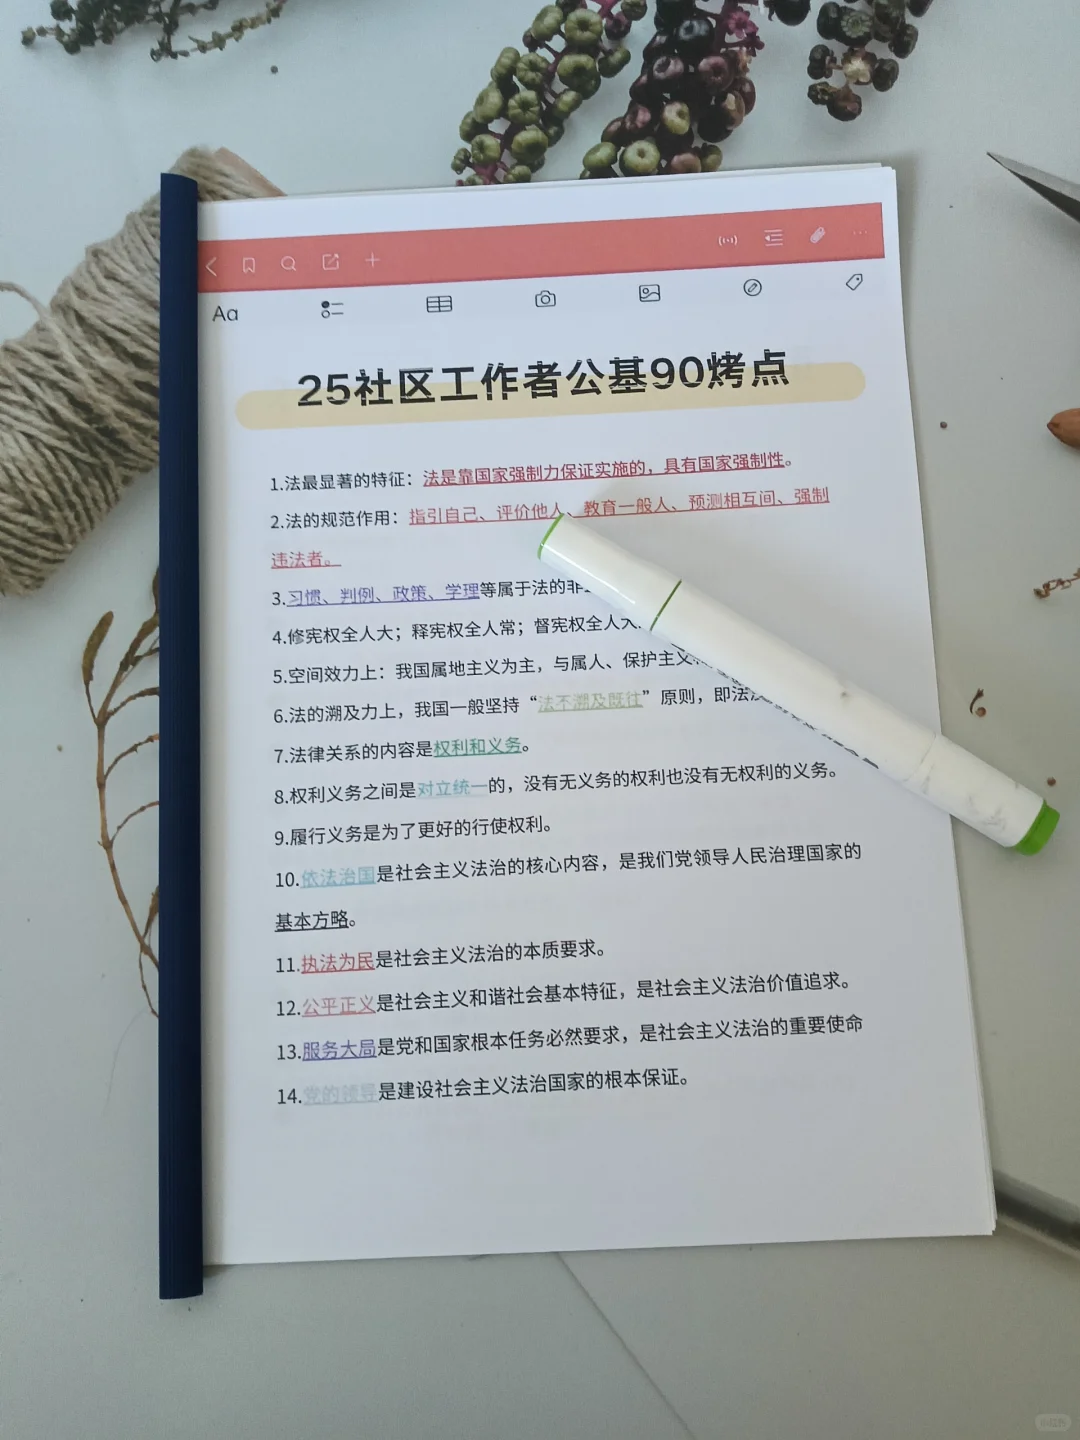 Aa
25社区工作者公基90烤点
1.法最显著的特征：法是靠国家强制力保证实施的，具有国家强制性。
2.法的规范作用：指引自己、评价他人、教育一般人、预测相互间、强制
违法者。
3.习惯、判例、政策、学理等属于法的非
4.修宪权全人大；释宪权全人常；督宪权全人
5.空间效力上：我国属地主义为主，与属人、保护主义
6.法的溯及力上，我国一般坚持“法不溯及既往”原则，即法
7.法律关系的内容是权利和义务。
8.权利义务之间是对立统一的，没有无义务的权利也没有无权利的义务。
9.履行义务是为了更好的行使权利。
10.依法治国是社会主义法治的核心内容，是我们党领导人民治理国家的
基本方略。
11.执法为民是社会主义法治的本质要求。
12.公平正义是社会主义和谐社会基本特征，是社会主义法治价值追求。
13.服务大局是党和国家根本任务必然要求，是社会主义法治的重要使命
14.党的领导是建设社会主义法治国家的根本保证。
小红书